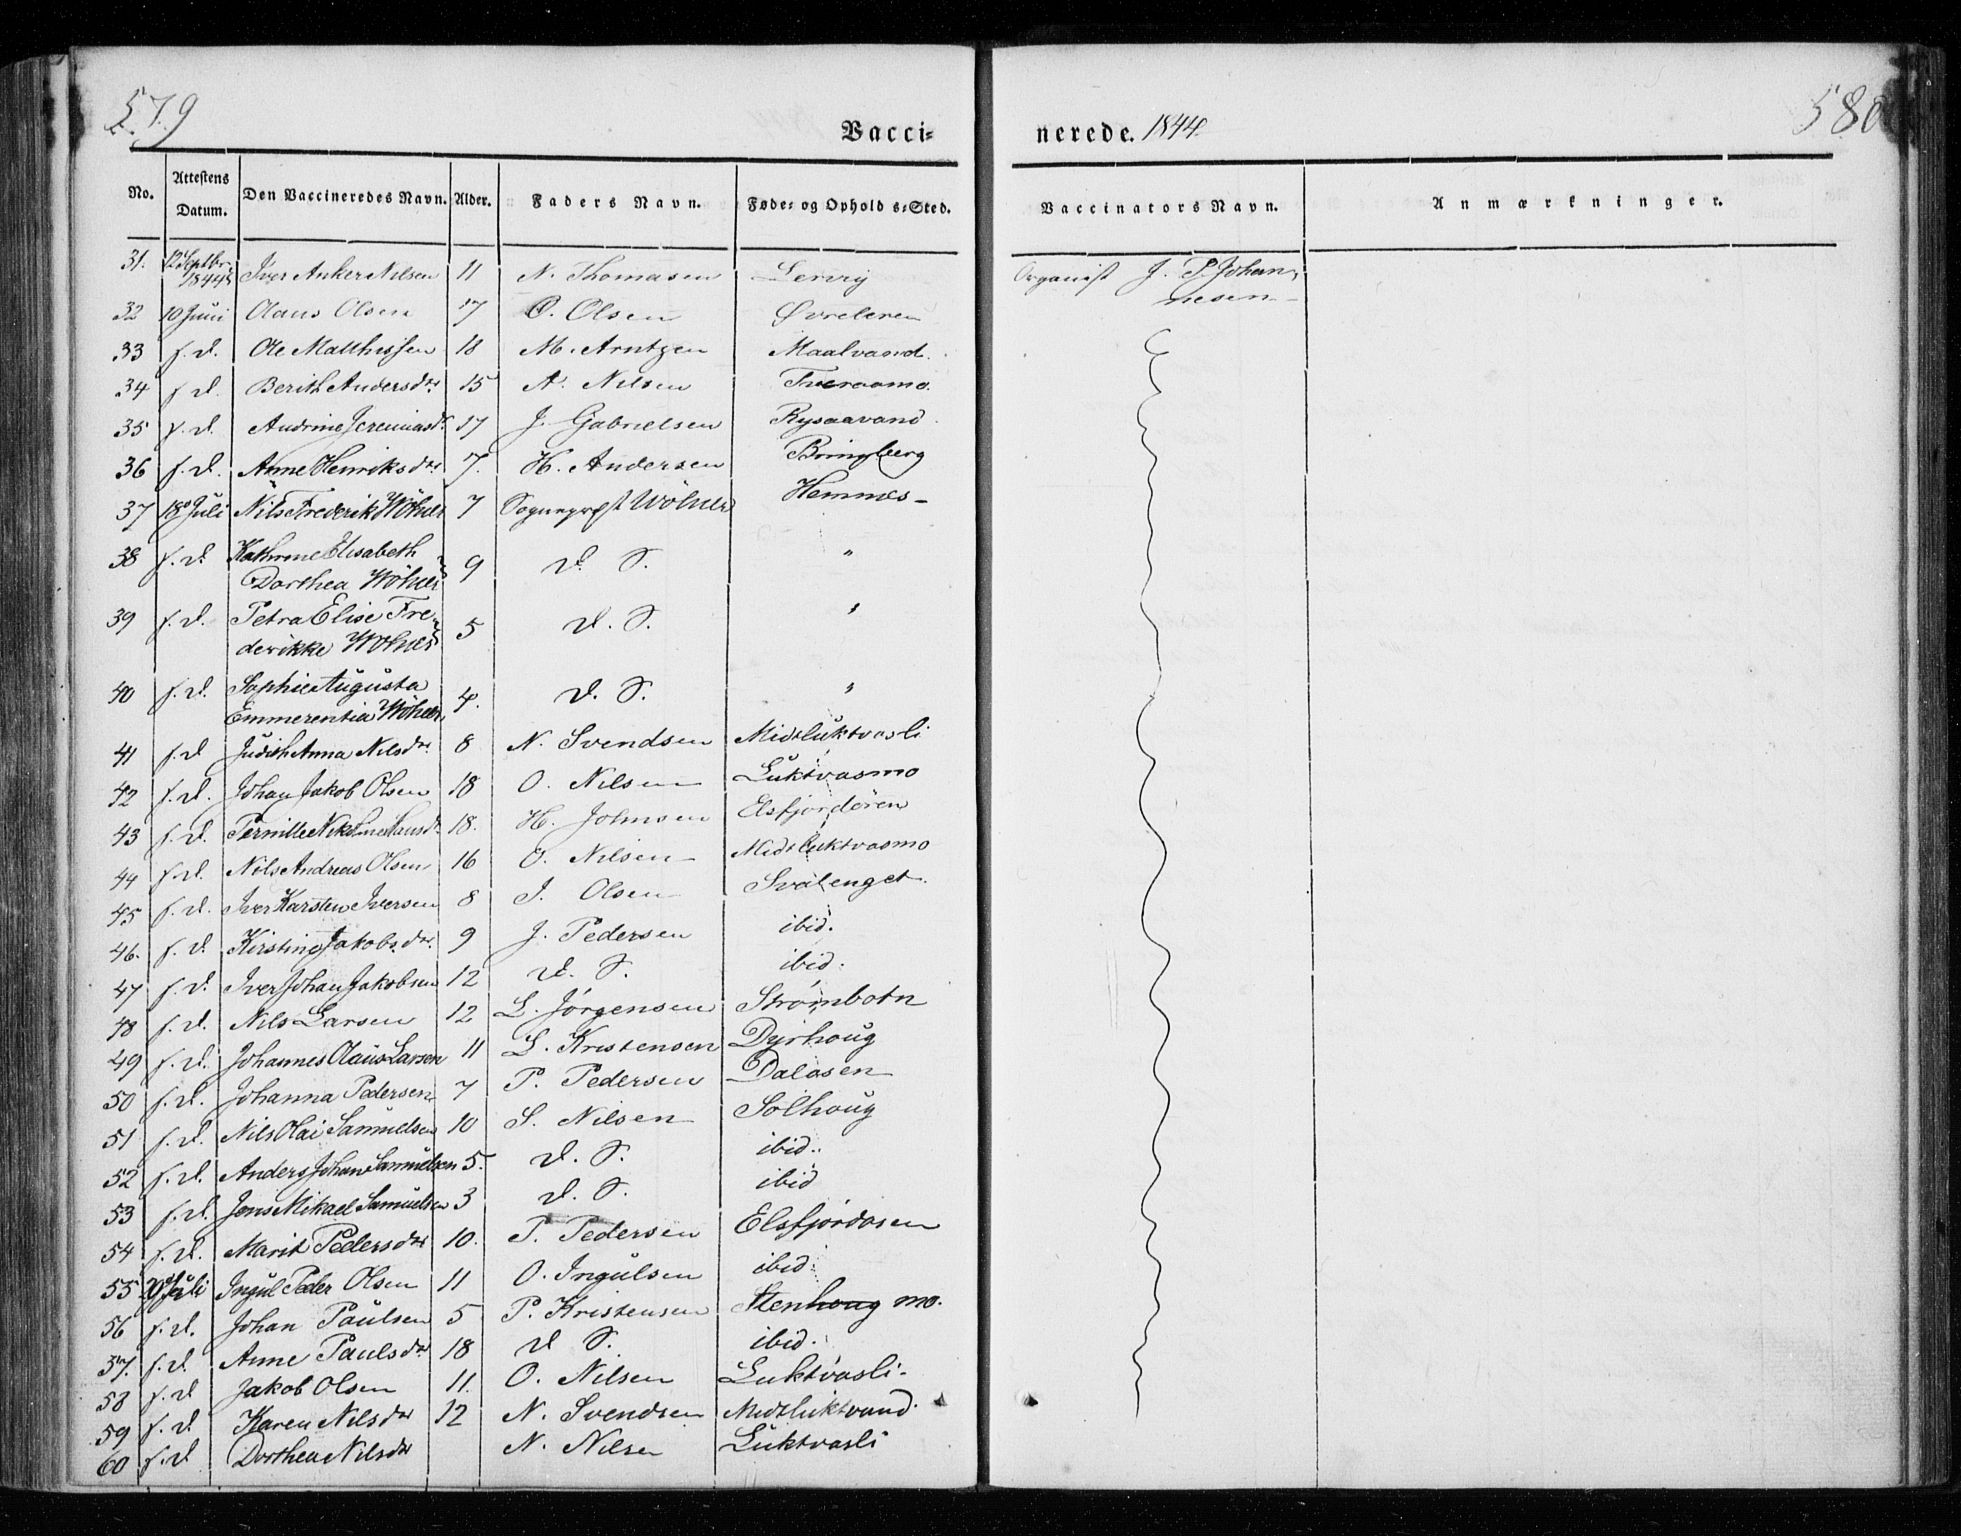 579
580
Vacci-
nerede. 1844.
No. Attestens Datum. Den Vaccineredes Navn. Alder. Faders Navn. Føde- og Opholds-Sted. Vaccinators Navn. Anmærkninger.
31. 12 Septbr. 1844 Iver Anker Nilsen 11 N. Thomasen Organist J. P. Johan-
nesen
32 10 Juni Olaus Olsen 17 O. Olsen Øvreleren
33 f. d. Ole Mathissen 18 M. Arntzen Maalvand.
34 f d. Berith Andersdr 15 A. Nilsen Tveraamo.
35 f. d. Andrine Jeremiasdr. 17 J. Gabrielsen Rysaavand
36 f. d. Anne Henriksdr 7. H. Andersen Bringberg
37 18 Juli Nils Frederik Wöhler 7 Sognepræst Wöhler Hemnes-
38 f. d. Kathrine Elisabeth
Dorthea Wöhler 9 d. S. "
39 f. d. Petra Elise Fre-
derikke Wöhler 5 d. S. "
40 f. d. Sophie Augusta
Emmerentia Wöhler 4. d. S. "
41 f. d Judith Anna Nilsdr 8 N. Svendsen Midtluktvasli
42 f. d. Johan Jakob Olsen 18 O. Nilsen Luktvasmo
43 f. d. Pernille Nikoline Hansdr. 18. H. Johnsen Elsfjordøren
44 f. d. Nils Andreas Olsen 16 O. Nilsen Midtluktvasmo
45 f. d. Iver Karsten Iversen 8 I. Olsen Svalenget.
46. f. d. Kirstine Jakobsdr. 9 J. Pedersen ibid.
47 f. d. Iver Johan Jakobsen 12 d. S. ibid.
48 f. d. Nils Larsen 12 L. Jørgensen Strømbotn
49 f. d. Johannes Olaus Larsen 11 L. Kristensen Dyrhoug
50 f. d. Johanna Pedersen 7 P. Pedersen Dalosen
51 f. d. Nils Olai Samuelsen 10 S. Nilsen Solhoug
52 f. d. Anders Johan Samuelsen 5. d. S. ibid.
53 f. d. Jens Mikael Samuelsen 3 d. S. ibid
54 f. d. Marit Pedersdr 10. P. Pedersen Elsfjordosen
55 Juli Ingul Peder Olsen 11 O. Ingulsen ibid.
56 f. d. Johan Paulsen 5 P. Kristensen Stenhoug mo.
57. f. d. Anne Paulsdr 18 d S. ibid.
58 f. d Jakob Olsen 11. O. Nilsen Luktvasli-
59 f. d Karen Nilsdr 12 N. Svendsen Midtluktvand.
60 f. d Dorthea Nilsdr N. Nilsen Luktvasli